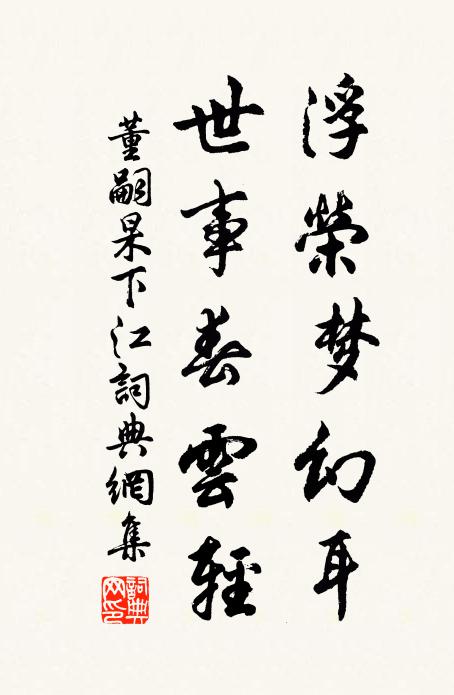 浮榮梦幻耳
世事春雲輕
董嗣杲下江詞典網集
詞典網印